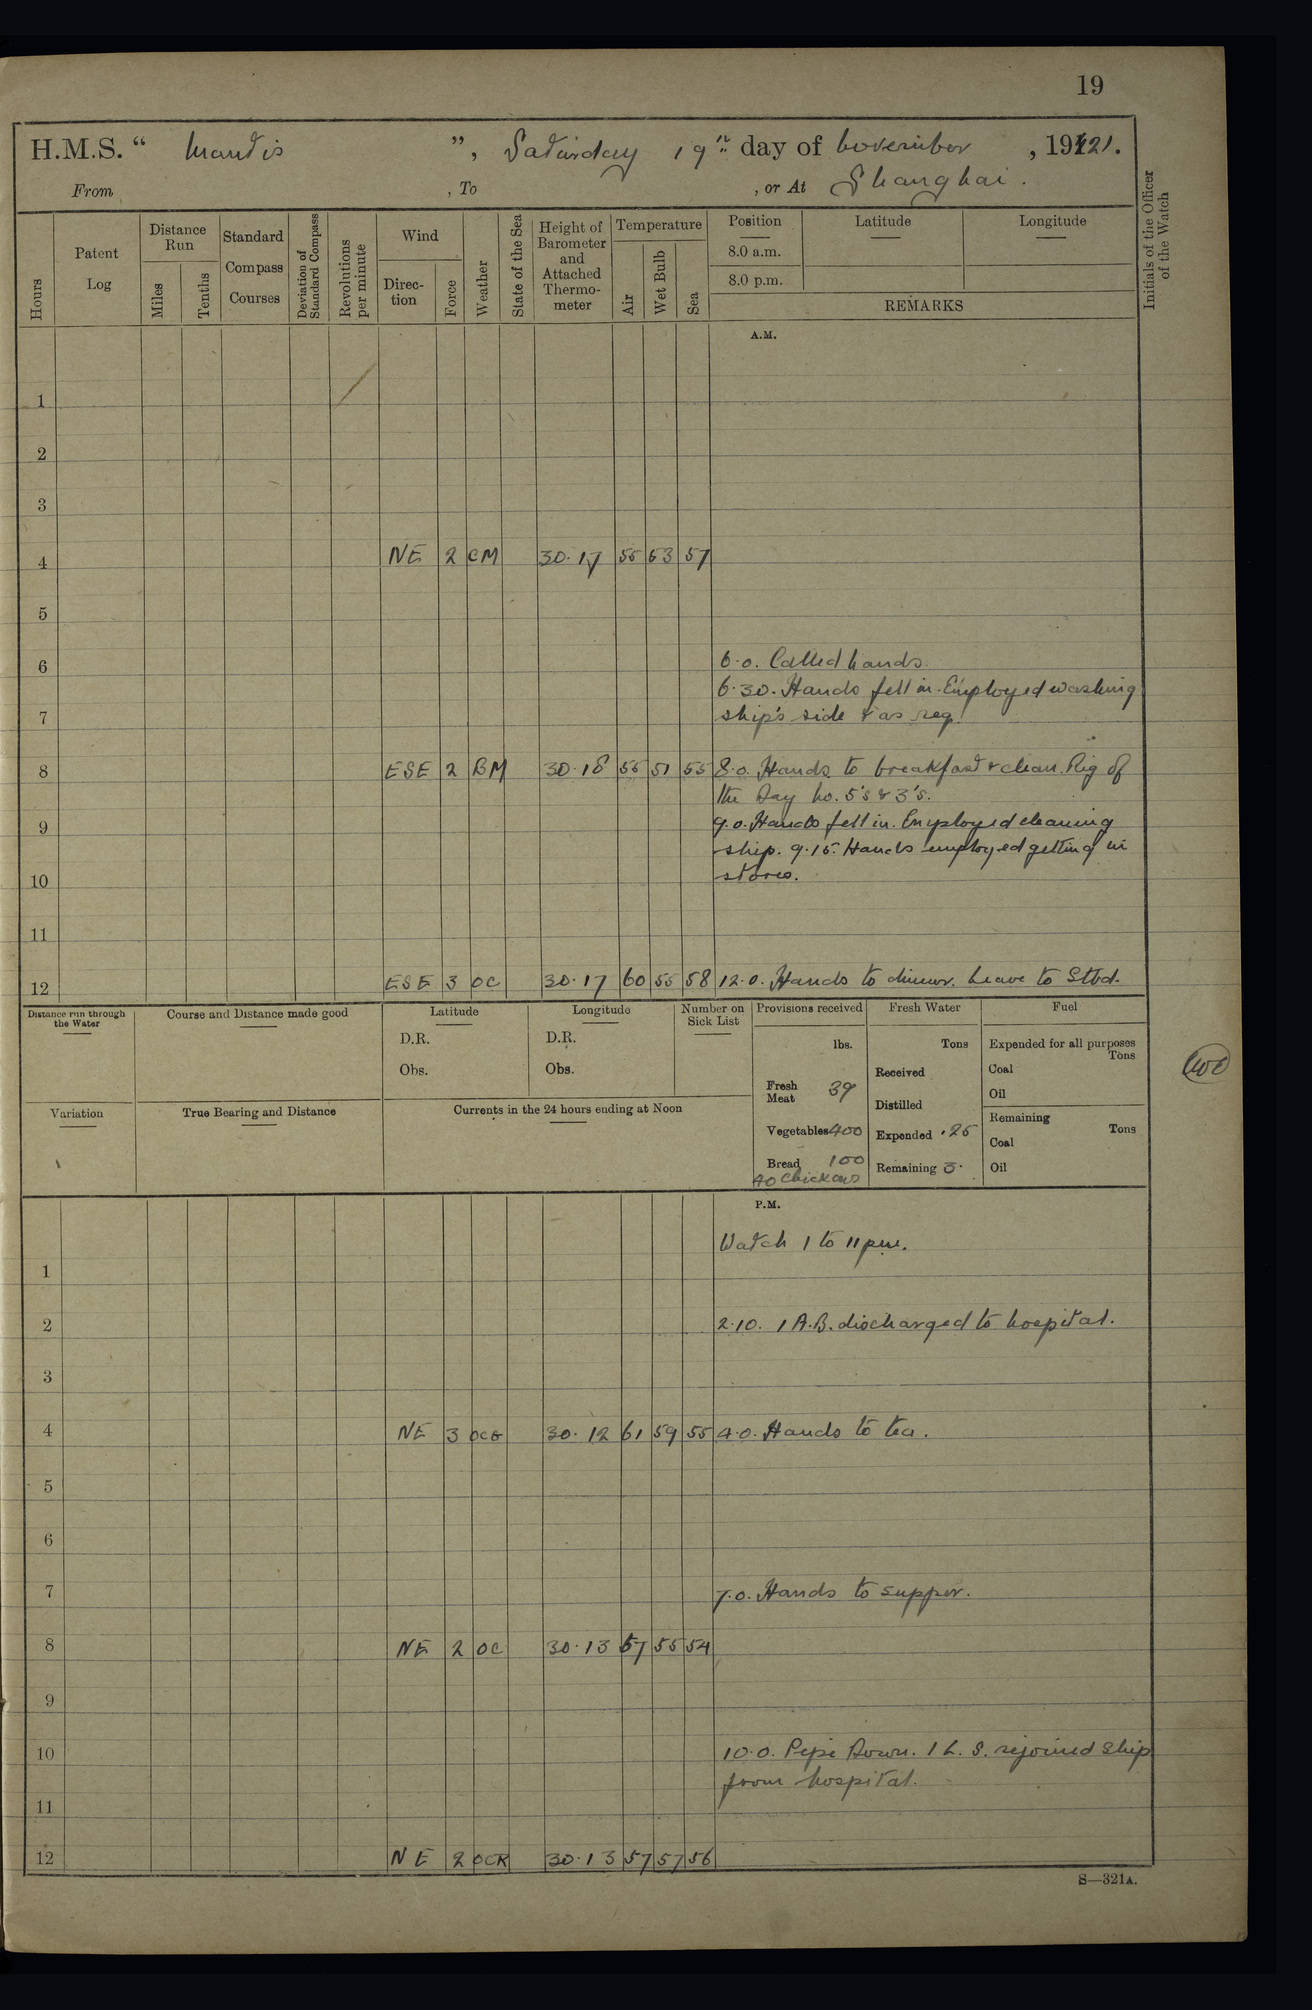 19
H.M.S. “ Mantis ”, Saturday 19th day of November, 1921.
From , To , or At Shanghai.
Hours
Patent Log
Distance Run
Miles
Tenths
Standard Compass Courses
Deviation of Standard Compass
Revolutions per minute
Wind
Direction
Force
Weather
State of the Sea
Height of Barometer and Attached Thermometer
Temperature
Air
Wet Bulb
Sea
Position Latitude Longitude
8.0 a.m.
8.0 p.m.
REMARKS
Initials of the Officer of the Watch
A.M.
1
2
3
4 NE 2 CM 30.17 55 53 57
5
6 6.0. Called hands.
6.30. Hands fell in. Employed washing
7 ship's side & as req.
8 ESE 2 BM 30.18 55 51 55 8.0. Hands to breakfast & clean. Rig of
the Day No. 5's & 3's.
9 9.0. Hands fell in. Employed cleaning
ship. 9.15. Hands employed getting in
10 stores.
11
12 ESE 3 OC 30.17 60 55 58 12.0. Hands to dinner. Leave to Stbd.
Distance run through the Water
Course and Distance made good
Latitude
D.R.
Obs.
Longitude
D.R.
Obs.
Number on Sick List
Provisions received
lbs.
Fresh Meat 39
Vegetables 400
Bread 100
40 Chickens
Fresh Water
Tons
Received
Distilled
Expended .25
Remaining 3.
Fuel
Expended for all purposes
Tons
Coal
Oil
Remaining
Tons
Coal
Oil
Variation
True Bearing and Distance
Currents in the 24 hours ending at Noon
P.M.
Watch 1 to 11 pm.
1
2 2.10. 1 A.B. discharged to hospital.
3
4 NE 3 OCG 30.12 61 59 55 4.0. Hands to tea.
5
6
7 7.0. Hands to supper.
8 NE 2 OC 30.13 57 55 54
9
10 10.0. Pipe Down. 1 L.S. rejoined ship
from hospital.
11
12 NE 2 OCR 30.13 57 57 56
S—321A.